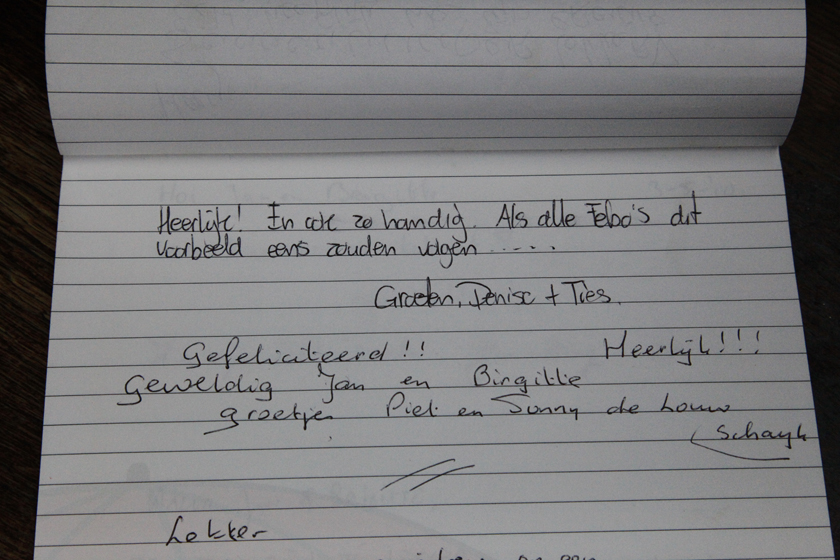 Heerlijk! En ook zo handig. Als alle Febo's dit
voorbeeld eens zouden volgen .....
Groeten, Denise + Ties.
Gefeliciteerd!! Heerlijk!!!
Geweldig Jan en Birgitte
groetjes Piet en Sonny de Louw
Schayk
Lekker